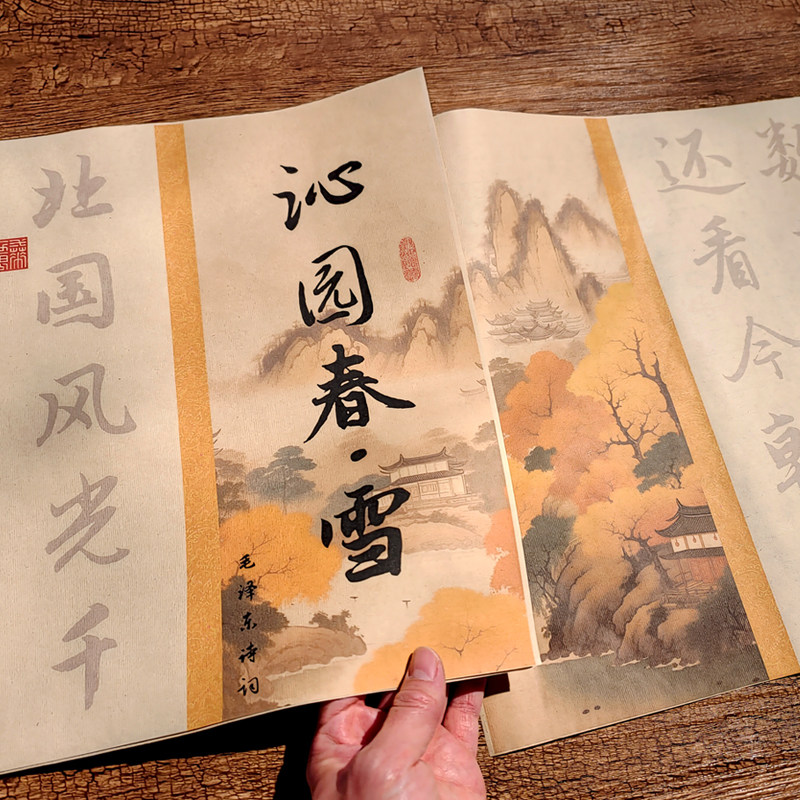 还看今
沁园春·雪
毛泽东诗词
北国风光千